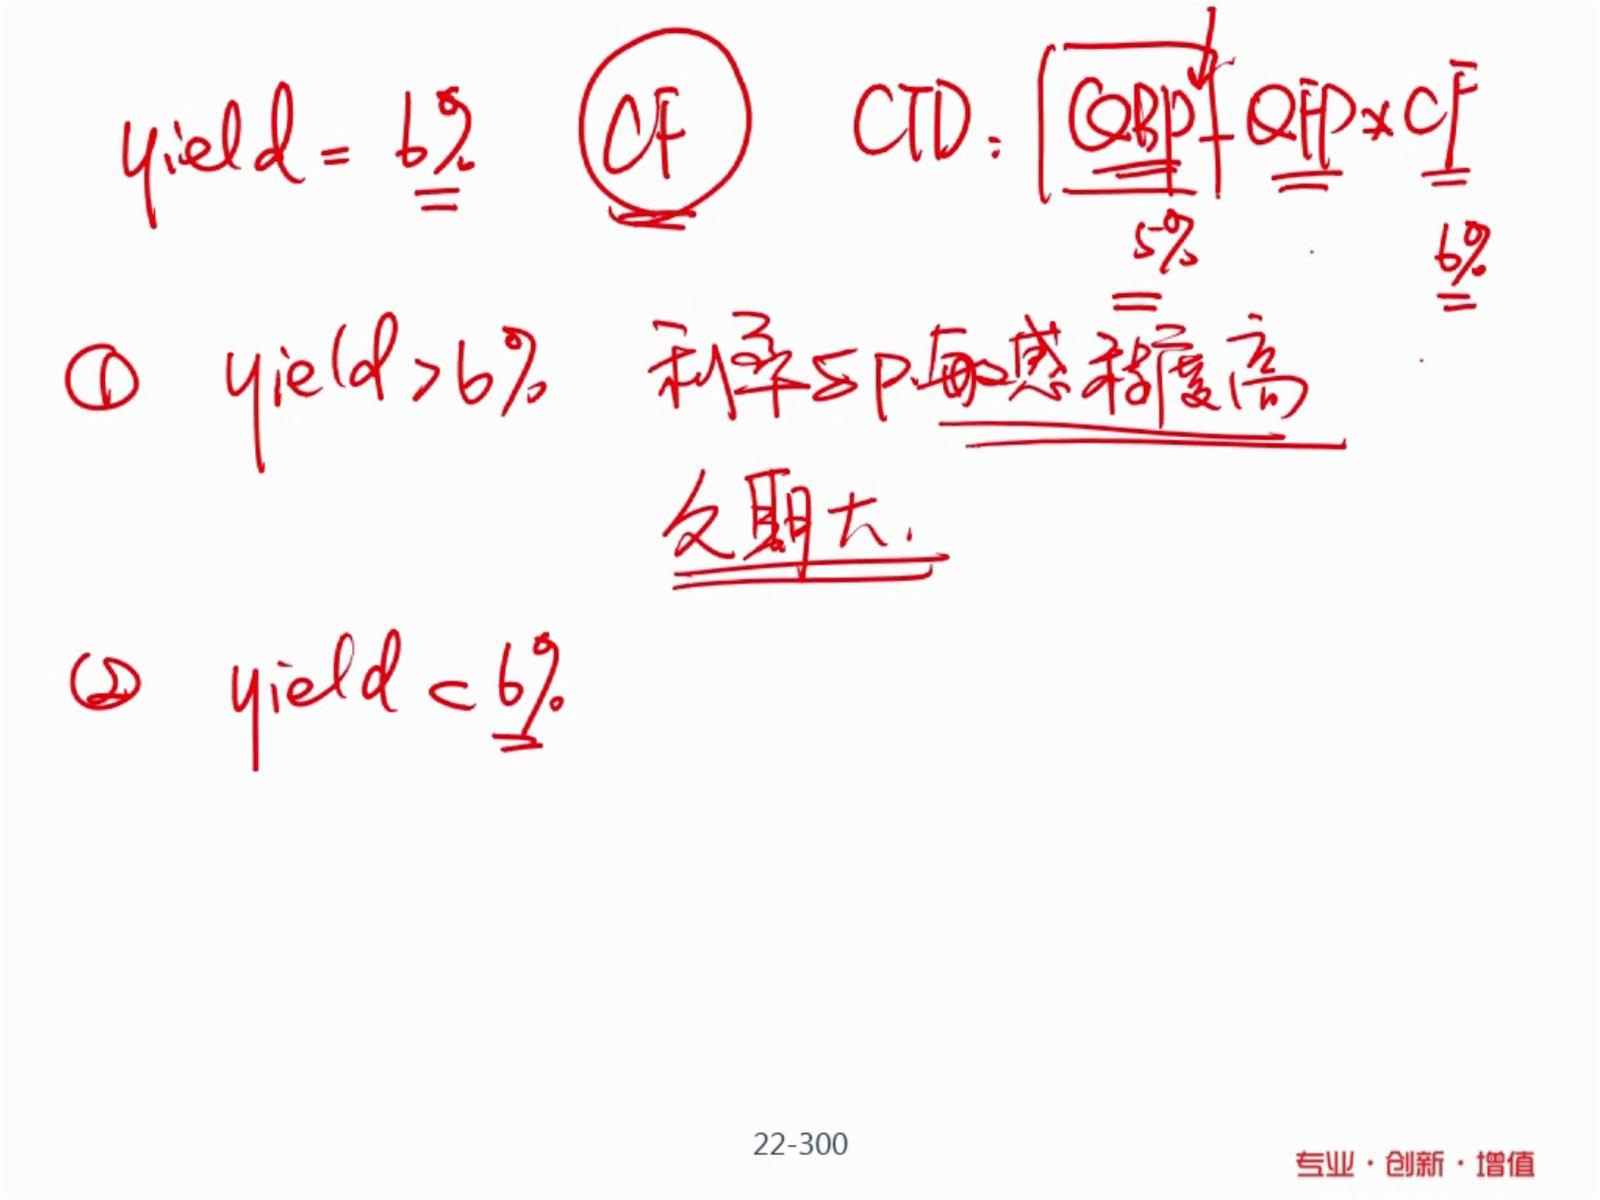 yield = 6% CF CTD: QBP - QFP × CF
5% 6%
① yield > 6% 利率与P.敏感程度高
久期大.
② yield < 6%
22-300
专业·创新·增值